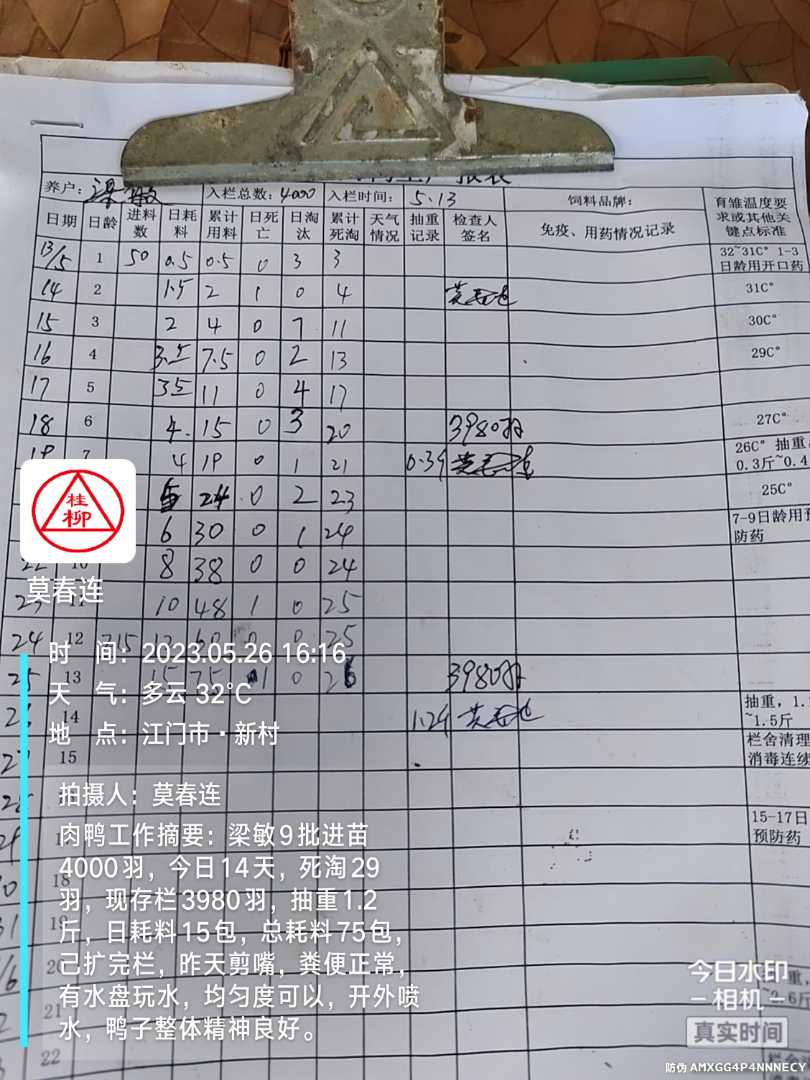 养户: 梁敏 入栏总数: 4000 入栏时间: 5.13 饲料品牌: 育雏温度要求或其他关键点标准
日期 日龄 进料数 日耗料 累计用料 日死亡 日淘汰 累计死淘 天气情况 抽重记录 检查人签名 免疫、用药情况记录
13/5 1 50 0.5 0.5 0 3 3 32~31C° 1-3日龄用开口药
14 2 1.5 2 1 0 4 31C°
15 3 2 4 0 7 11 30C°
16 4 3.5 7.5 0 2 13 29C°
17 5 3.5 11 0 4 17
18 6 4. 15 0 3 20 3980羽 27C°
19 7 4 19 0 1 21 0.39 26C° 抽重 0.3斤~0.4
5 24 0 2 23 25C°
6 30 0 1 24 7-9日龄用预防药
22 10 8 38 0 0 24
23 11 10 48 1 0 25
24 12 215 12 60 0 0 25
25 13 15 75 1 0 26 3980羽
26 14 1.24 抽重, 1. ~1.5斤
27 15 栏舍清理 消毒连续
15-17日 预防药
18
19
20
21
22
桂柳
莫春连
时 间: 2023.05.26 16:16
天 气: 多云 32℃
地 点: 江门市·新村
拍摄人: 莫春连
肉鸭工作摘要: 梁敏9批进苗
4000羽, 今日14天, 死淘29
羽, 现存栏3980羽, 抽重1.2
斤, 日耗料15包, 总耗料75包,
己扩完栏, 昨天剪嘴, 粪便正常,
有水盘玩水, 均匀度可以, 开外喷
水, 鸭子整体精神良好。
今日水印
-相机-
真实时间
防伪 AMXGG4P4NNNECY